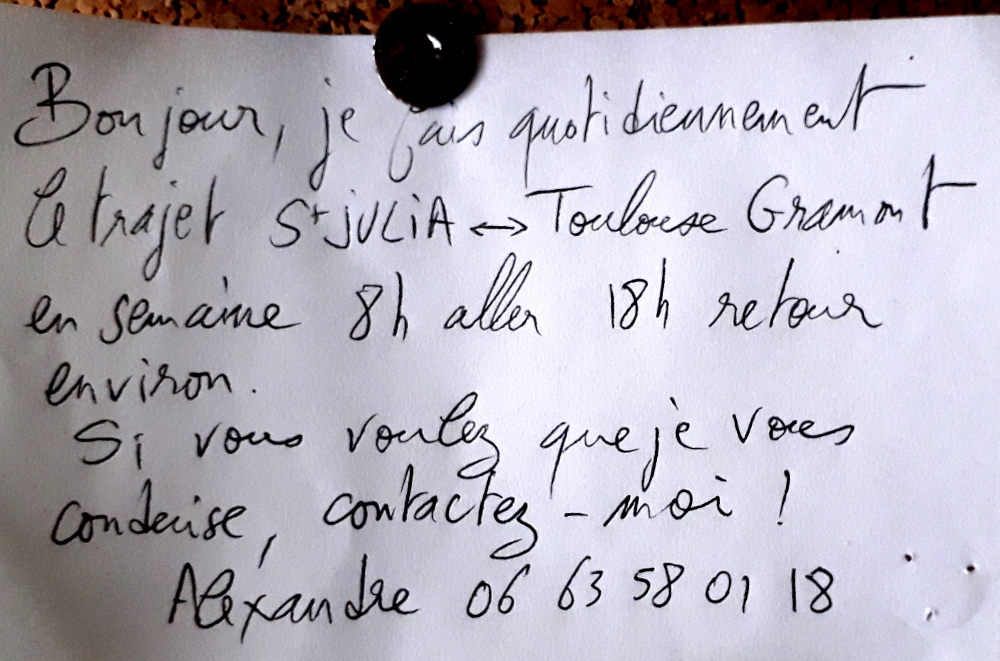 Bonjour, je fais quotidiennement
le trajet St JULiA ↔ Toulouse Gramont
en semaine 8h aller 18h retour
environ.
Si vous voulez que je vous
conduise, contactez-moi !
Alexandre 06 63 58 01 18